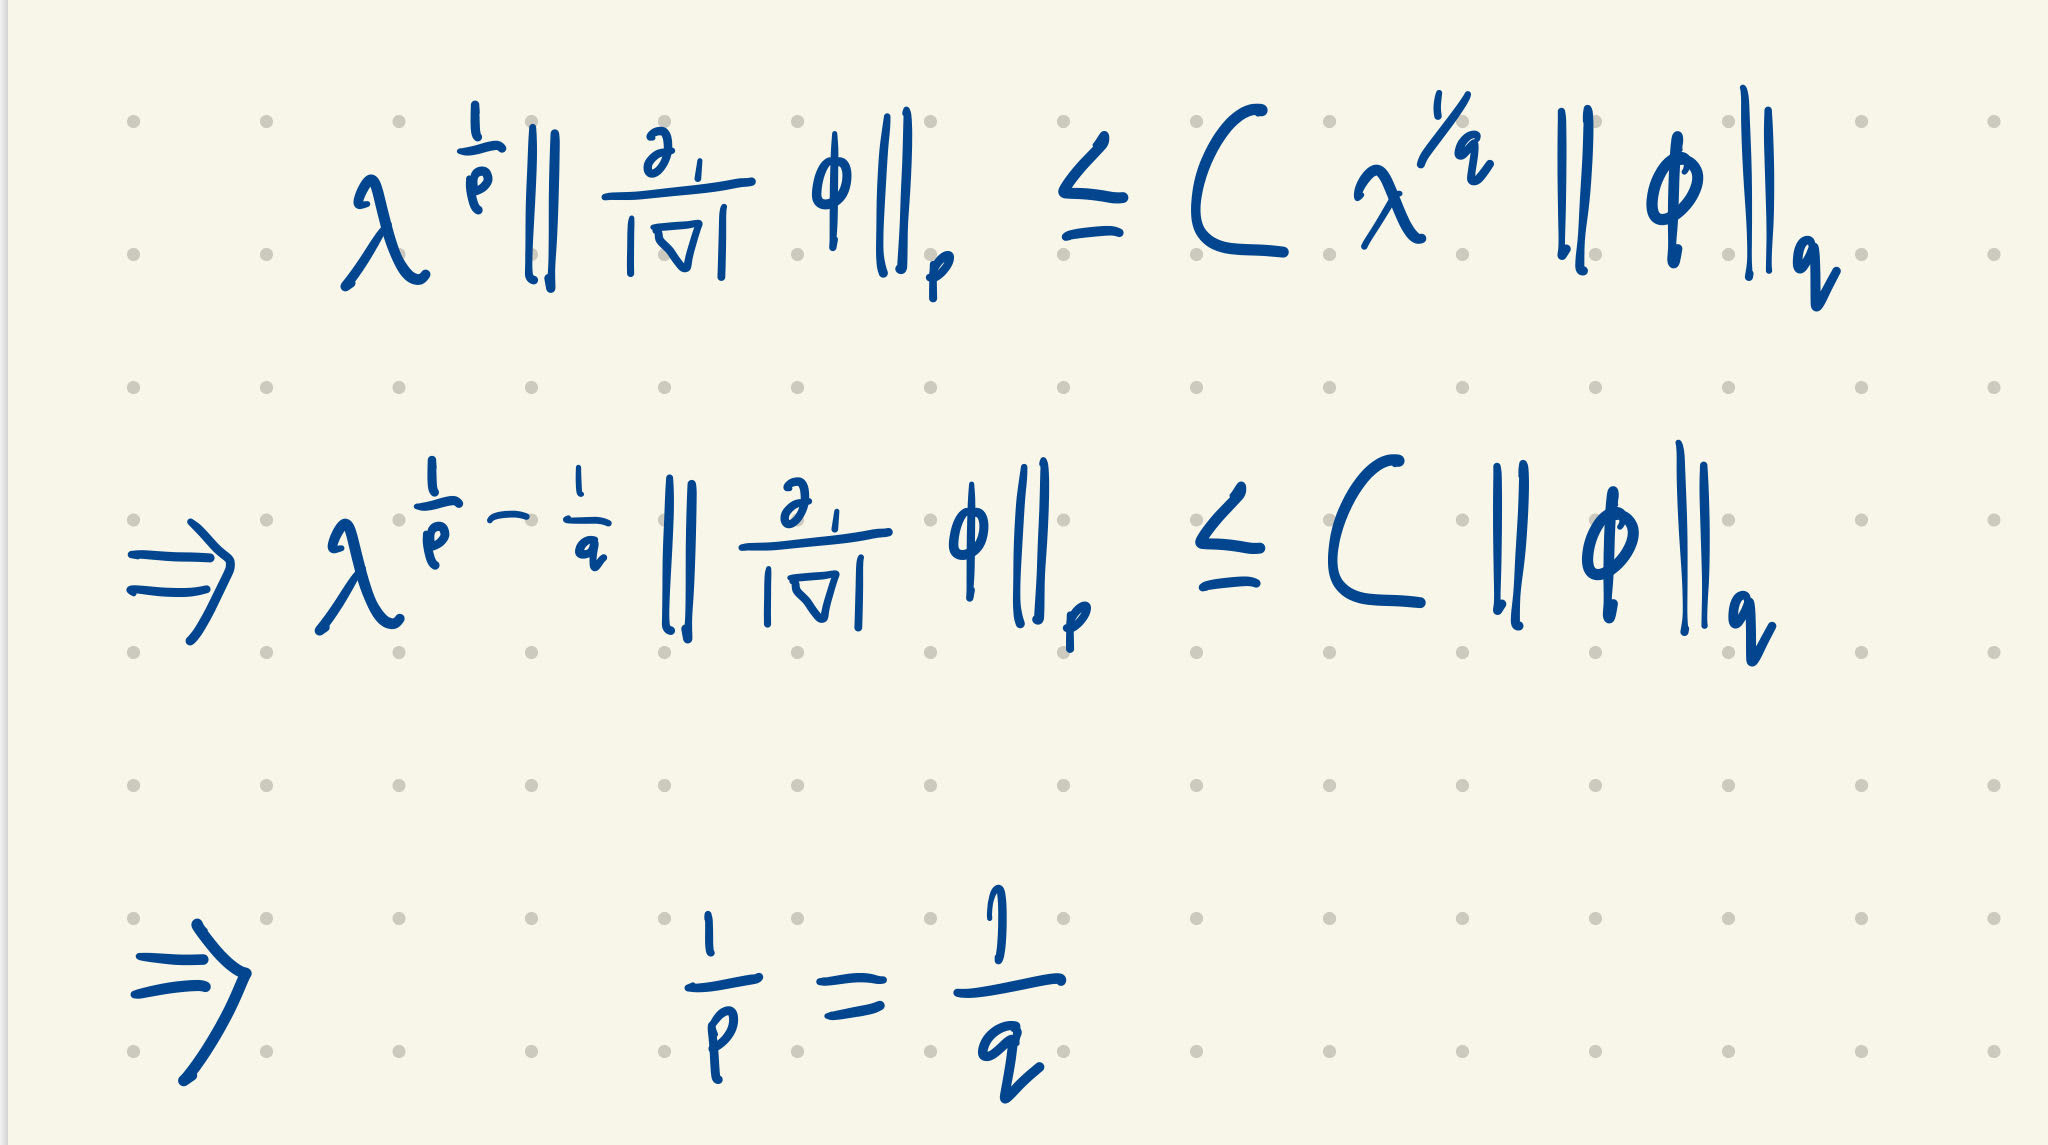 λ^{1/p} ‖ ∂₁/|∇| ϕ ‖_p ≤ C λ^{1/q} ‖ ϕ ‖_q
⇒ λ^{1/p − 1/q} ‖ ∂₁/|∇| ϕ ‖_p ≤ C ‖ ϕ ‖_q
⇒ 1/p = 1/q